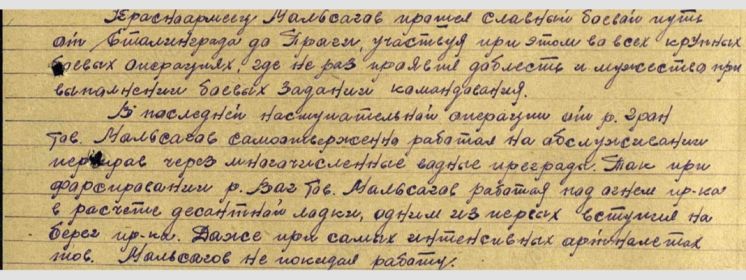 Красноармеец Мальсагов прошел славный боевой путь
от Сталинграда до Праги, участвуя при этом во всех крупных
боевых операциях, где не раз проявил доблесть и мужество при
выполнении боевых заданий командования.
В последней наступательной операции от р. Грон
тов. Мальсагов самоотверженно работал на обслуживании
переправ через многочисленные водные преграды. Так при
форсировании р. Ваг тов. Мальсагов работая под огнем пр-ка
в расчете десантной лодки, одним из первых вступил на
берег пр-ка. Даже при самых интенсивных артналетах
тов. Мальсагов не покидал работу.